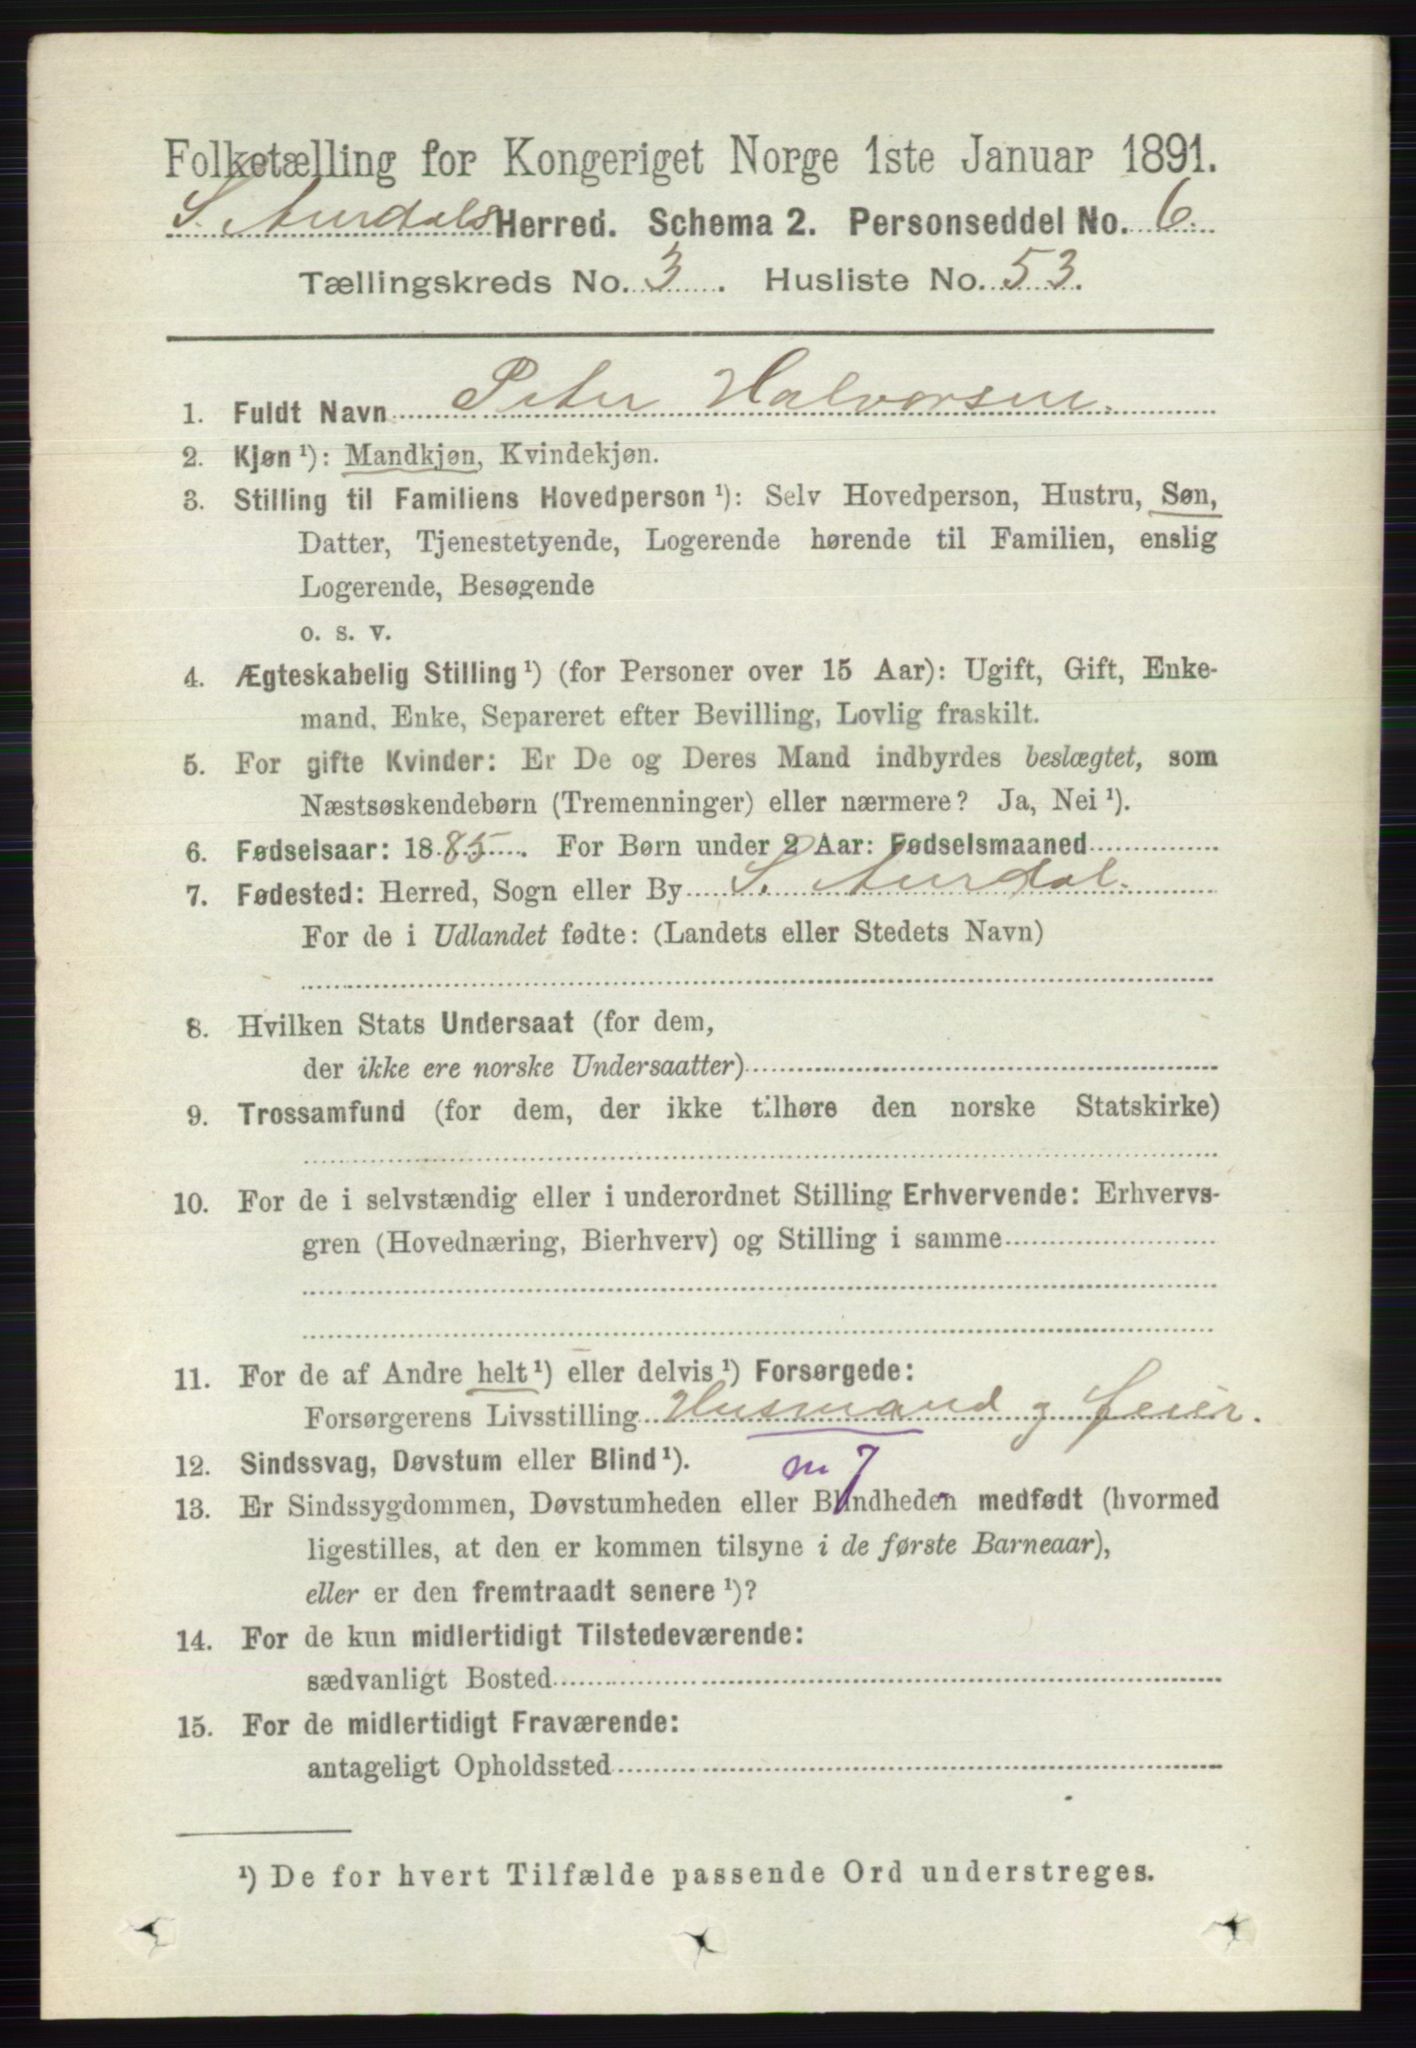 Folketælling for Kongeriget Norge 1ste Januar 1891.
S. Aurdals Herred. Schema 2. Personseddel No. 6.
Tællingskreds No. 3. Husliste No. 53.
1. Fuldt Navn Peter Halvorsen.
2. Kjøn ¹): Mandkjøn, Kvindekjøn.
3. Stilling til Familiens Hovedperson ¹): Selv Hovedperson, Hustru, Søn,
Datter, Tjenestetyende, Logerende hørende til Familien, enslig
Logerende, Besøgende
o. s. v.
4. Ægteskabelig Stilling ¹) (for Personer over 15 Aar): Ugift, Gift, Enke-
mand, Enke, Separeret efter Bevilling, Lovlig fraskilt.
5. For gifte Kvinder: Er De og Deres Mand indbyrdes beslægtet, som
Næstsøskendebørn (Tremenninger) eller nærmere? Ja, Nei ¹).
6. Fødselsaar: 1885. For Børn under 2 Aar: Fødselsmaaned
7. Fødested: Herred, Sogn eller By S. Aurdal.
For de i Udlandet fødte: (Landets eller Stedets Navn)
8. Hvilken Stats Undersaat (for dem,
der ikke ere norske Undersaatter)
9. Trossamfund (for dem, der ikke tilhøre den norske Statskirke)
10. For de i selvstændig eller i underordnet Stilling Erhvervende: Erhvervs-
gren (Hovednæring, Bierhverv) og Stilling i samme
11. For de af Andre helt ¹) eller delvis ¹) Forsørgede:
Forsørgerens Livsstilling Husmand g feier.
12. Sindssvag, Døvstum eller Blind ¹). m 7
13. Er Sindssygdommen, Døvstumheden eller Blindheden medfødt (hvormed
ligestilles, at den er kommen tilsyne i de første Barneaar),
eller er den fremtraadt senere ¹)?
14. For de kun midlertidigt Tilstedeværende:
sædvanligt Bosted
15. For de midlertidigt Fraværende:
antageligt Opholdssted
¹) De for hvert Tilfælde passende Ord understreges.